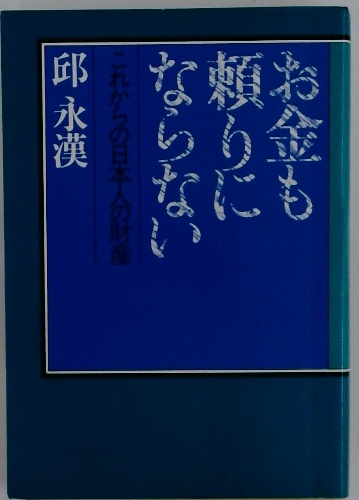 お金も
頼りに
ならない
これからの日本人の財産
邱永漢